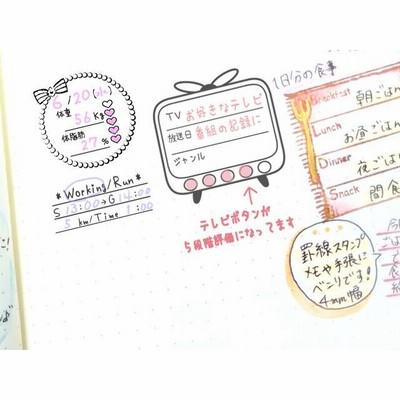 6/20(水)
体重 56 Kg
体脂肪 27 %
*Working/Run*
S 13:00→G 14:00
5 km/Time 1:00
TV お好きなテレビ
放送日 番組の記録に
ジャンル
テレビボタンが
5段階評価になってます
1日分の食事
Breakfast 朝ごはん
Lunch お昼ごはん
Dinner 夜ごはん
Snack 間食
罫線スタンプ
メモや手張に
ベンリです!
4mm幅